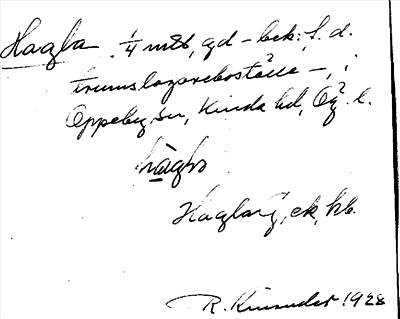 Hagla. 1/4 mtl, gd – bek: f. d.
trumslagareboställe –, i
Oppeby sn, Kinda hd, Ög. l.
Haglas, ek, kb.
R. Kinander 1928